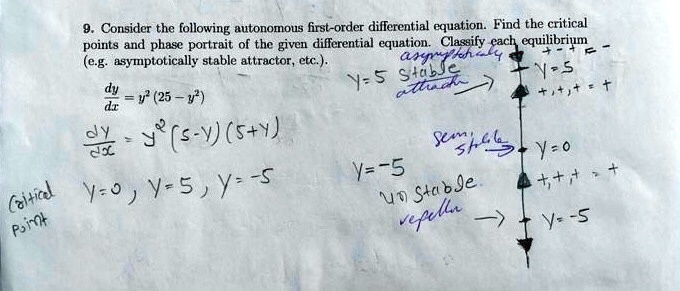 9. Consider the following autonomous first-order differential equation. Find the critical
points and phase portrait of the given differential equation. Classify each equilibrium
(e.g. asymptotically stable attractor, etc.).
dy/dx = y² (25 – y²)
dy/dx = y² (5-y) (5+y)
Critical Point
y=0, y=5, y=-5
asymptotically
y=5 stable
attractor
+ - + = -
y=5
+,+,+ = +
semi stable
y=0
y=-5
unstable
repeller
+,+,+ = +
y=-5